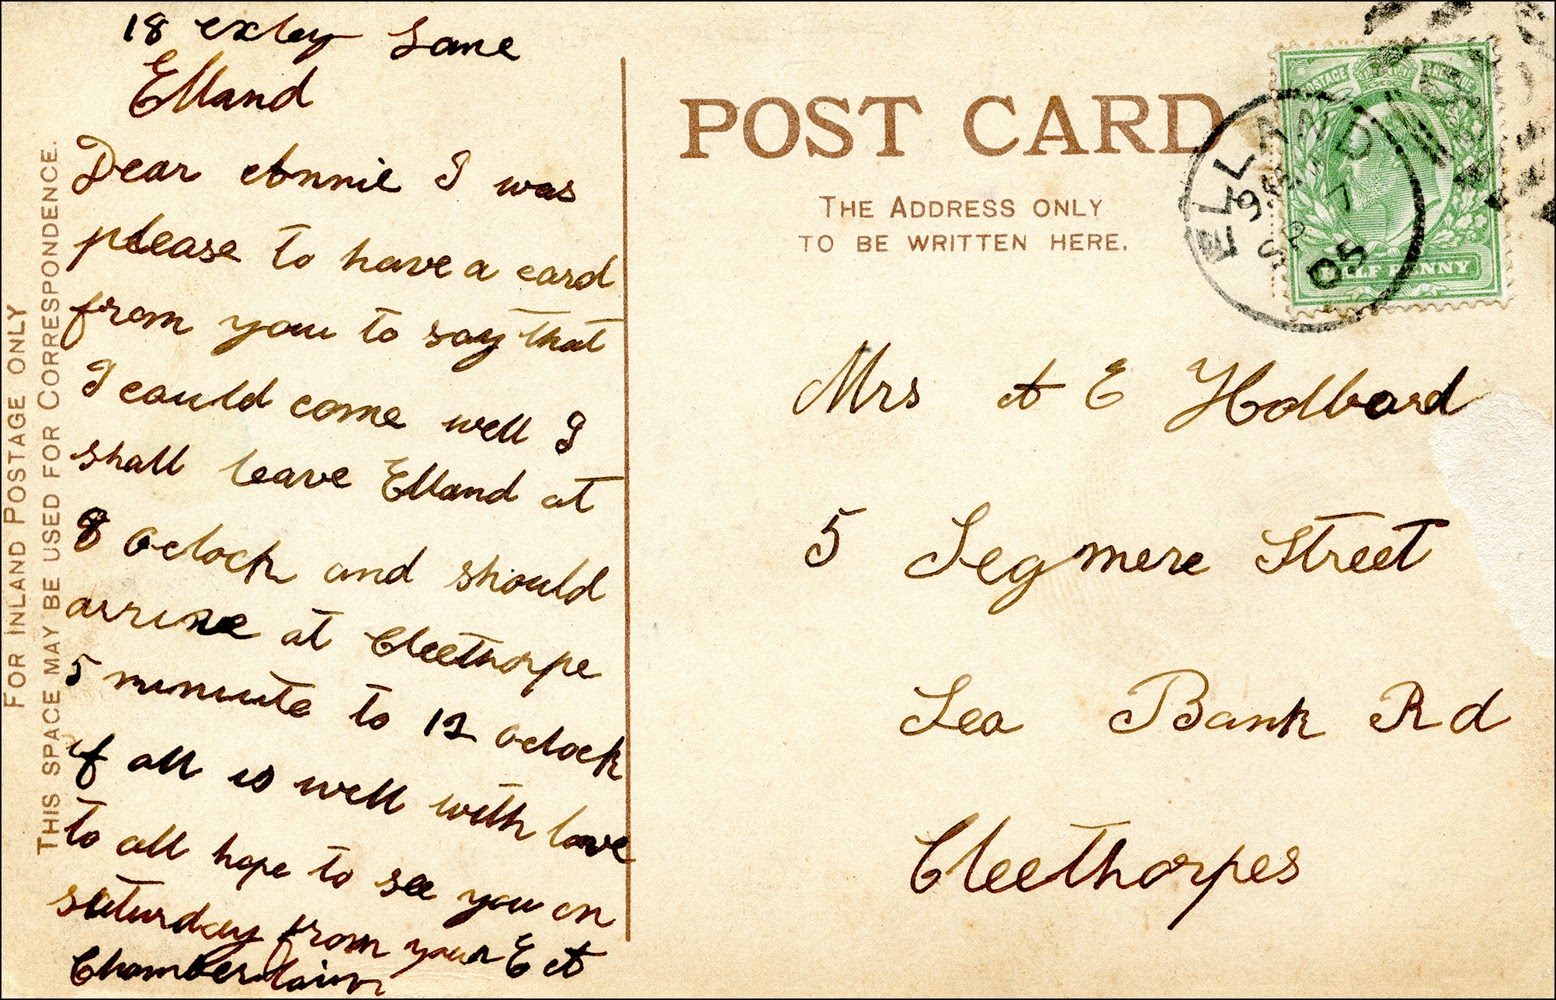 18 exley Lane
Elland
Dear Annie I was
please to have a card
from you to say that
I could come well I
shall leave Elland at
8 Oclock and should
arrive at Cleethorpe
5 minuite to 12 oclock
if all is well with love
to all hope to see you on
saturday from your E A
Chamberlain
FOR INLAND POSTAGE ONLY
THIS SPACE MAY BE USED FOR CORRESPONDENCE.
POST CARD
THE ADDRESS ONLY
TO BE WRITTEN HERE.
POSTAGE REVENUE
HALF PENNY
ELLAND
SP 7
05
Mrs A E Holbard
5 Segmere Street
Sea Bank Rd
Cleethorpes